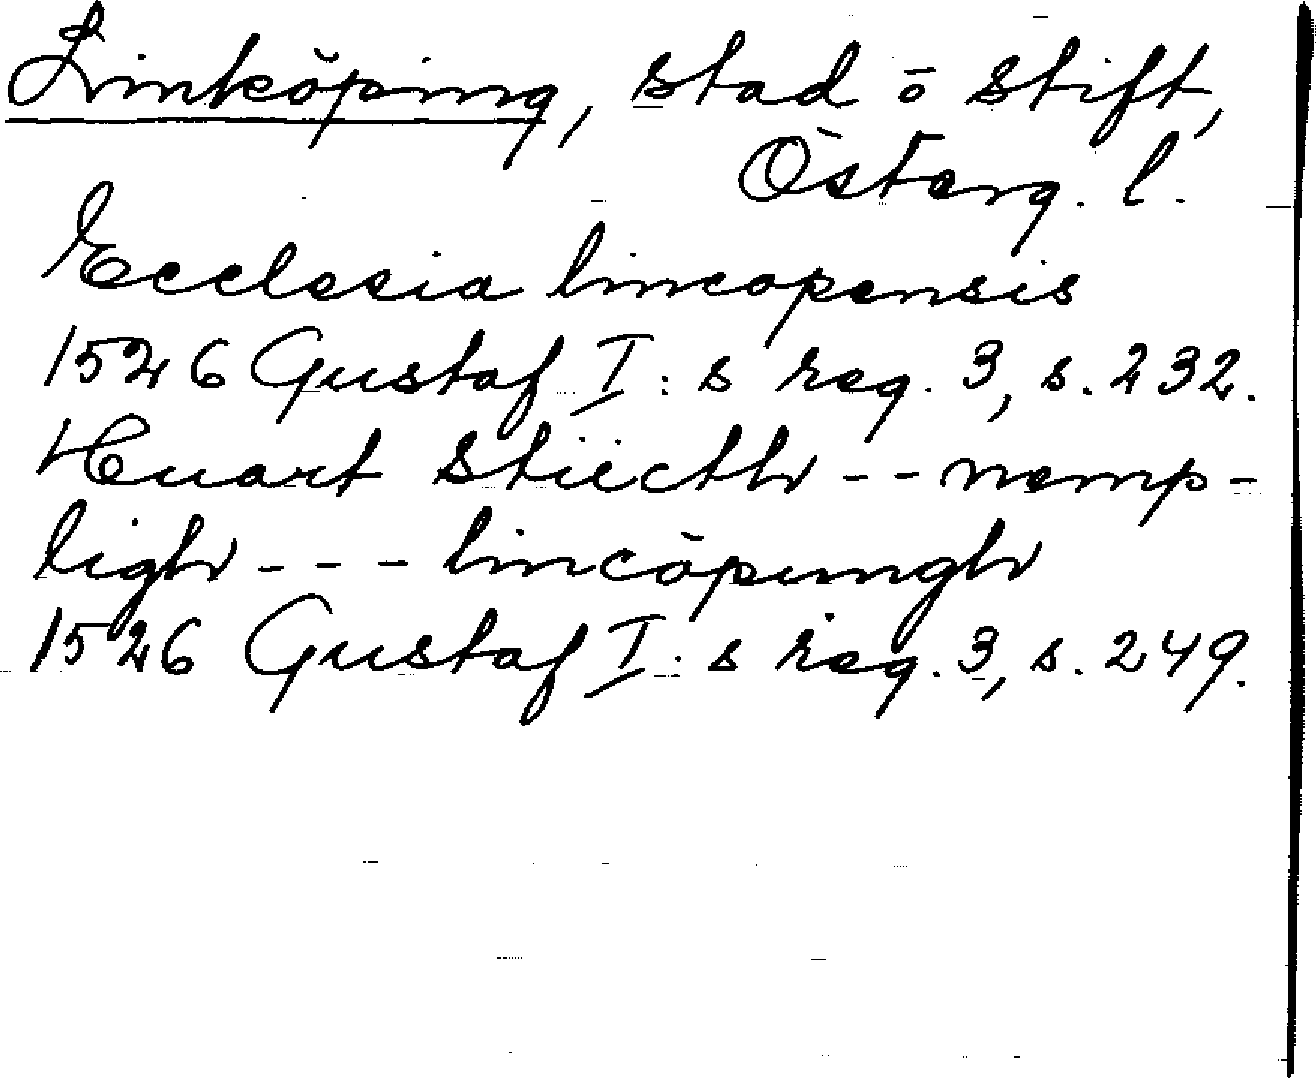 Linköping, stad o stift,
Österg. l.
Ecclesia lincopensis
1526 Gustaf I:s reg. 3, s. 232.
Huart sticth -- nemp-
ligh --- lincöpungh
1526 Gustaf I:s reg. 3, s. 249.